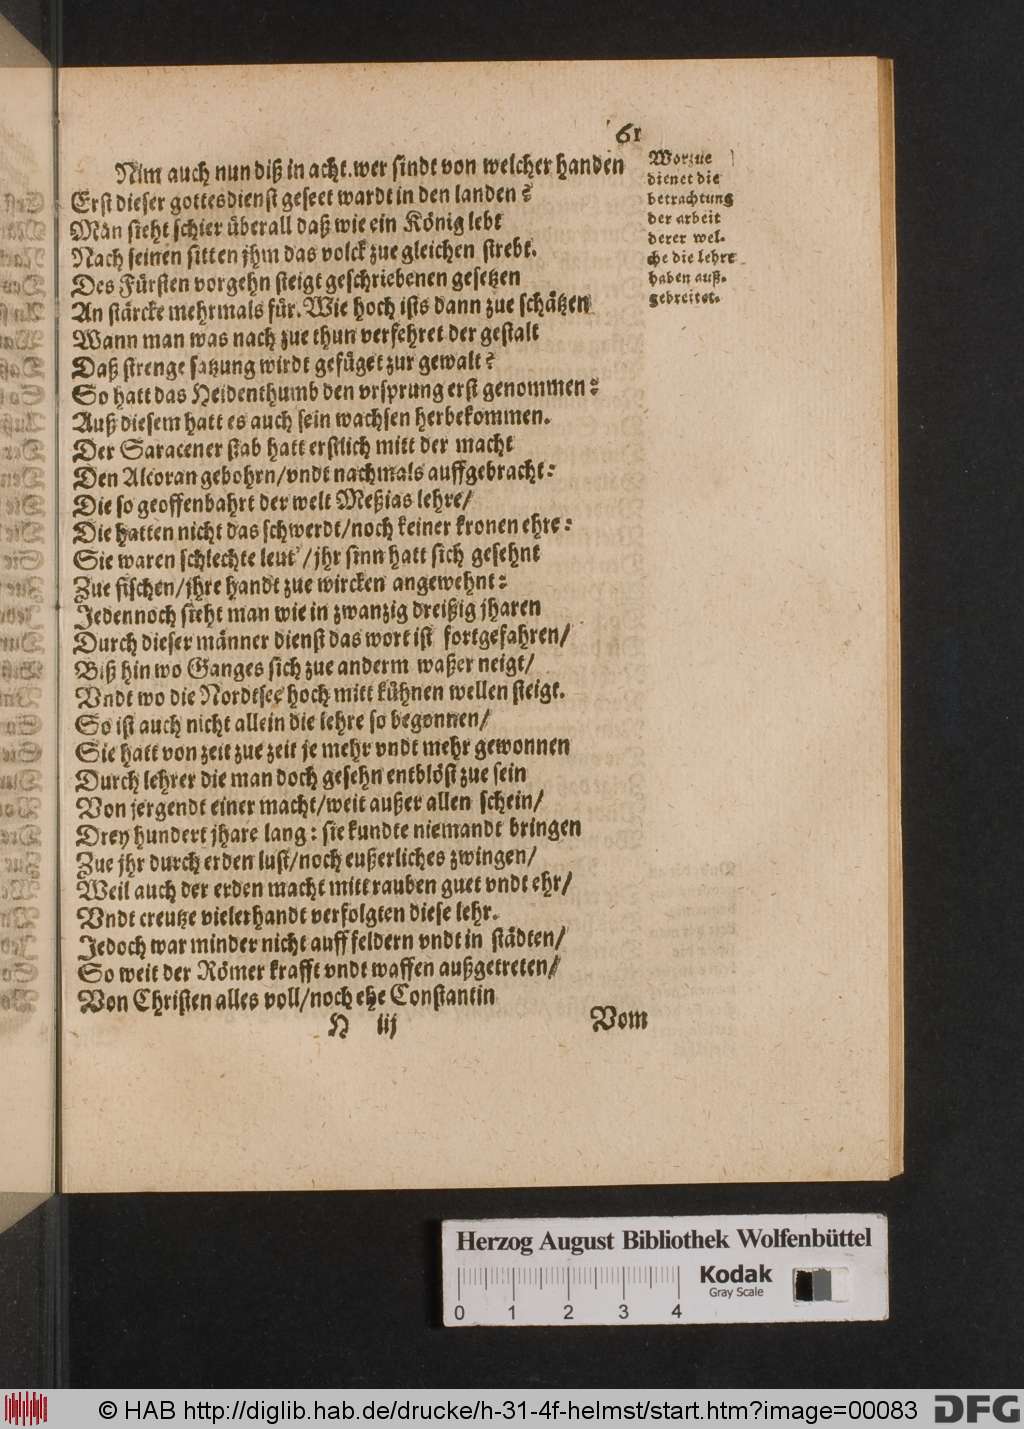 61
Nim auch nun diß in acht. wer sindt von welcher handen
Erst dieser gottesdienst geseet wardt in den landen?
Man sieht schier überall daß wie ein König lebt
Nach seinen sitten jhm das volck zue gleichen strebt.
Des Fürsten vorgehn steigt geschriebenen gesetzen
An stärcke mehrmals für. Wie hoch ists dann zue schätzen
Wann man was nach zue thun versehret der gestalt
Daß strenge satzung wirdt gefüget zur gewalt?
So hatt das Heidenthumb den vrsprung erst genommen:
Auß diesem hatt es auch sein wachsen herbekommen.
Der Saracener stab hatt erstlich mitt der macht
Den Alcoran gebohrn/vndt nachmals auffgebracht:
Die so geoffenbahrt der welt Meßias lehre/
Die hatten nicht das schwerdt/noch keiner kronen ehre:
Sie waren schlechte leut'/jhr sinn hatt sich gesehnt
Zue fischen/jhre handt zue wircken angewehnt:
Jedennoch sieht man wie in zwanzig dreißig jharen
Durch dieser männer dienst das wort ist fortgefahren/
Biß hin wo Ganges sich zue anderm waßer neigt/
Vndt wo die Nordtsee hoch mitt kühnen wellen steigt.
So ist auch nicht allein die lehre so begonnen/
Sie hatt von zeit zue zeit je mehr vndt mehr gewonnen
Durch lehrer die man doch gesehn entblöst zue sein
Von jergendt einer macht/weit außer allen schein/
Drey hundert jhare lang: sie kundte niemandt bringen
Zue jhr durch erden lust/noch eußerliches zwingen/
Weil auch der erden macht mitt rauben guet vndt ehr/
Vndt creutze vielerhandt verfolgten diese lehr.
Jedoch war minder nicht auff feldern vndt in städten/
So weit der Römer krafft vndt waffen außgetreten/
Von Christen alles voll/noch ehe Constantin
H iij Vom
Worzue
dienet die
betrachtung
der arbeit
derer wel-
che die lehre
haben auß-
gebreitet.
Herzog August Bibliothek Wolfenbüttel
Kodak
Gray Scale
0 1 2 3 4
© HAB http://diglib.hab.de/drucke/h-31-4f-helmst/start.htm?image=00083
DFG